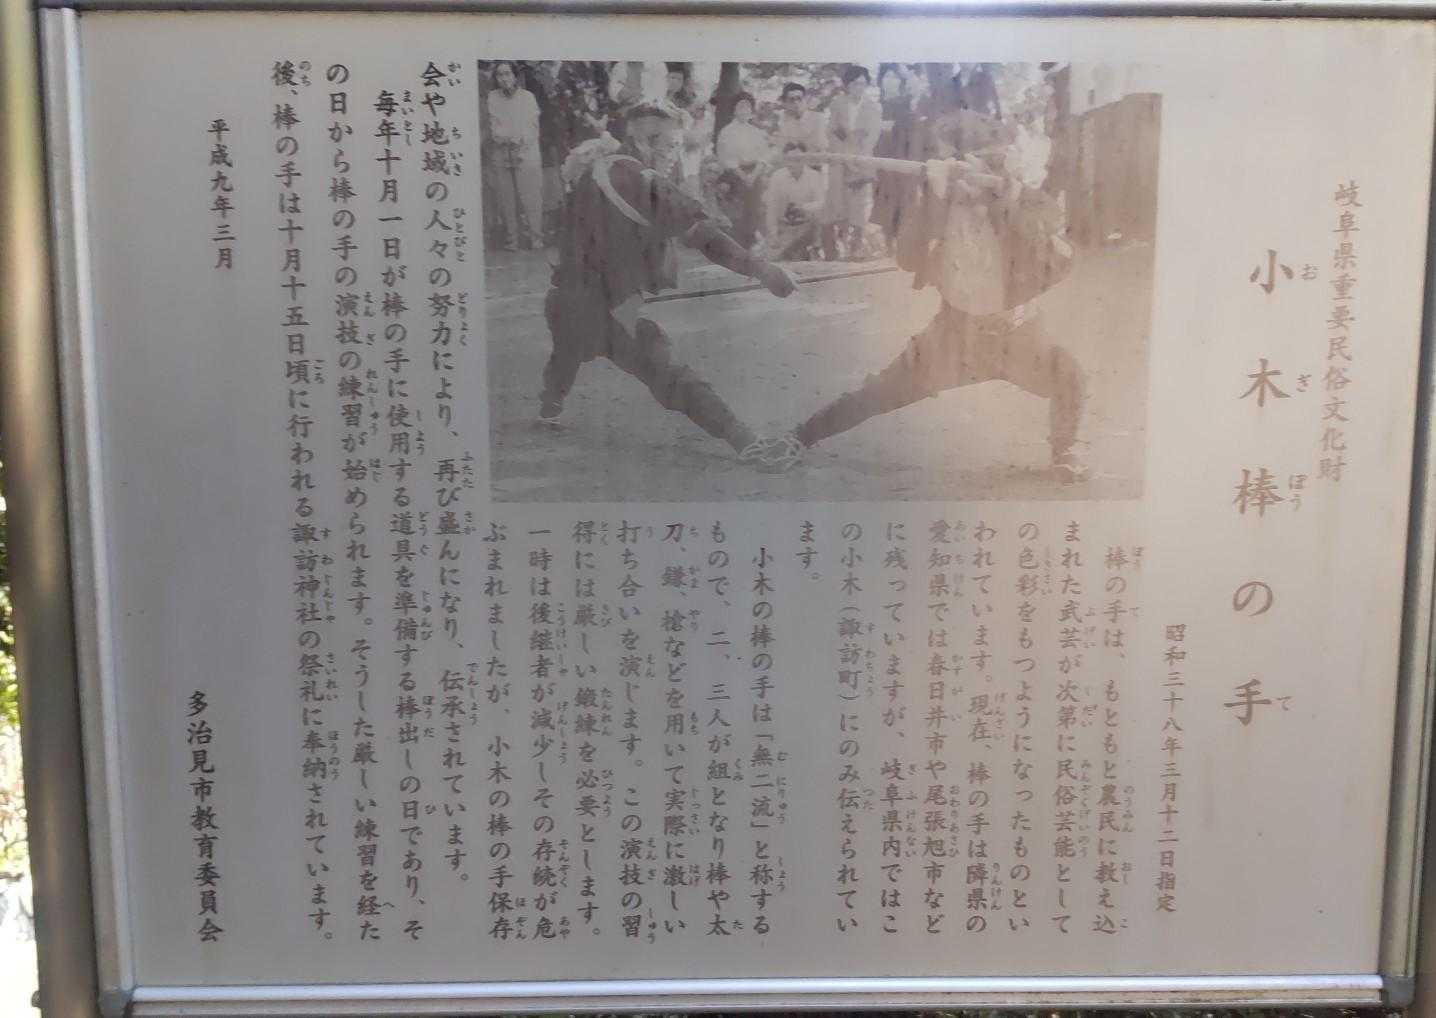 岐阜県重要民俗文化財
小木棒の手
昭和三十八年三月十二日指定
棒の手は、もともと農民に教え込
まれた武芸が次第に民俗芸能として
の色彩をもつようになったものとい
われています。現在、棒の手は隣県の
愛知県では春日井市や尾張旭市など
に残っていますが、岐阜県内ではこ
の小木（諏訪町）にのみ伝えられてい
ます。
小木の棒の手は「無二流」と称する
もので、二、三人が組となり棒や太
刀、鎌、槍などを用いて実際に激しい
打ち合いを演じます。この演技の習
得には厳しい鍛練を必要とします。
一時は後継者が減少しその存続が危
ぶまれましたが、小木の棒の手保存
会や地域の人々の努力により、再び盛んになり、伝承されています。
毎年十月一日が棒の手に使用する道具を準備する棒出しの日であり、そ
の日から棒の手の演技の練習が始められます。そうした厳しい練習を経た
後、棒の手は十月十五日頃に行われる諏訪神社の祭礼に奉納されています。
平成九年三月
多治見市教育委員会